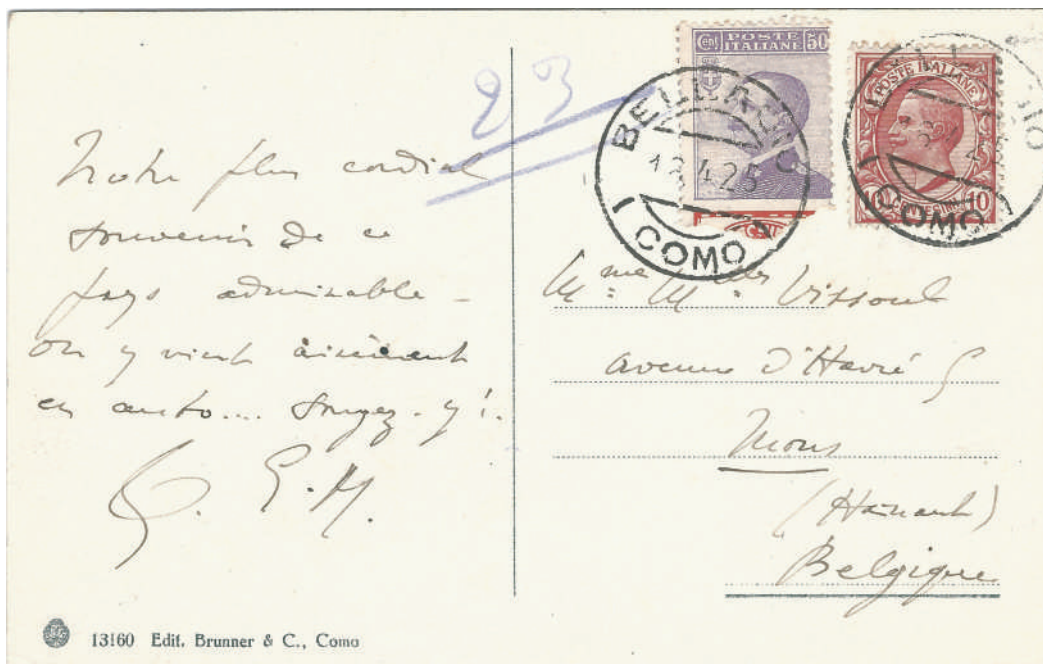 23
Notre plus cordial
souvenir de ce
pays admirable -
on y vient aisément
en auto.... songez-y!.
G. E.M.
Cent POSTE 50
ITALIANE
POSTE ITALIANE
10 CENTESIMI 10
BELLAGIO
13.4.25
(COMO)
BELLAGIO
(COMO)
Mme Mlles Vissoul
avenue d'Havré 5
Mons
(Hainaut)
Belgique
13160 Edit. Brunner & C., Como